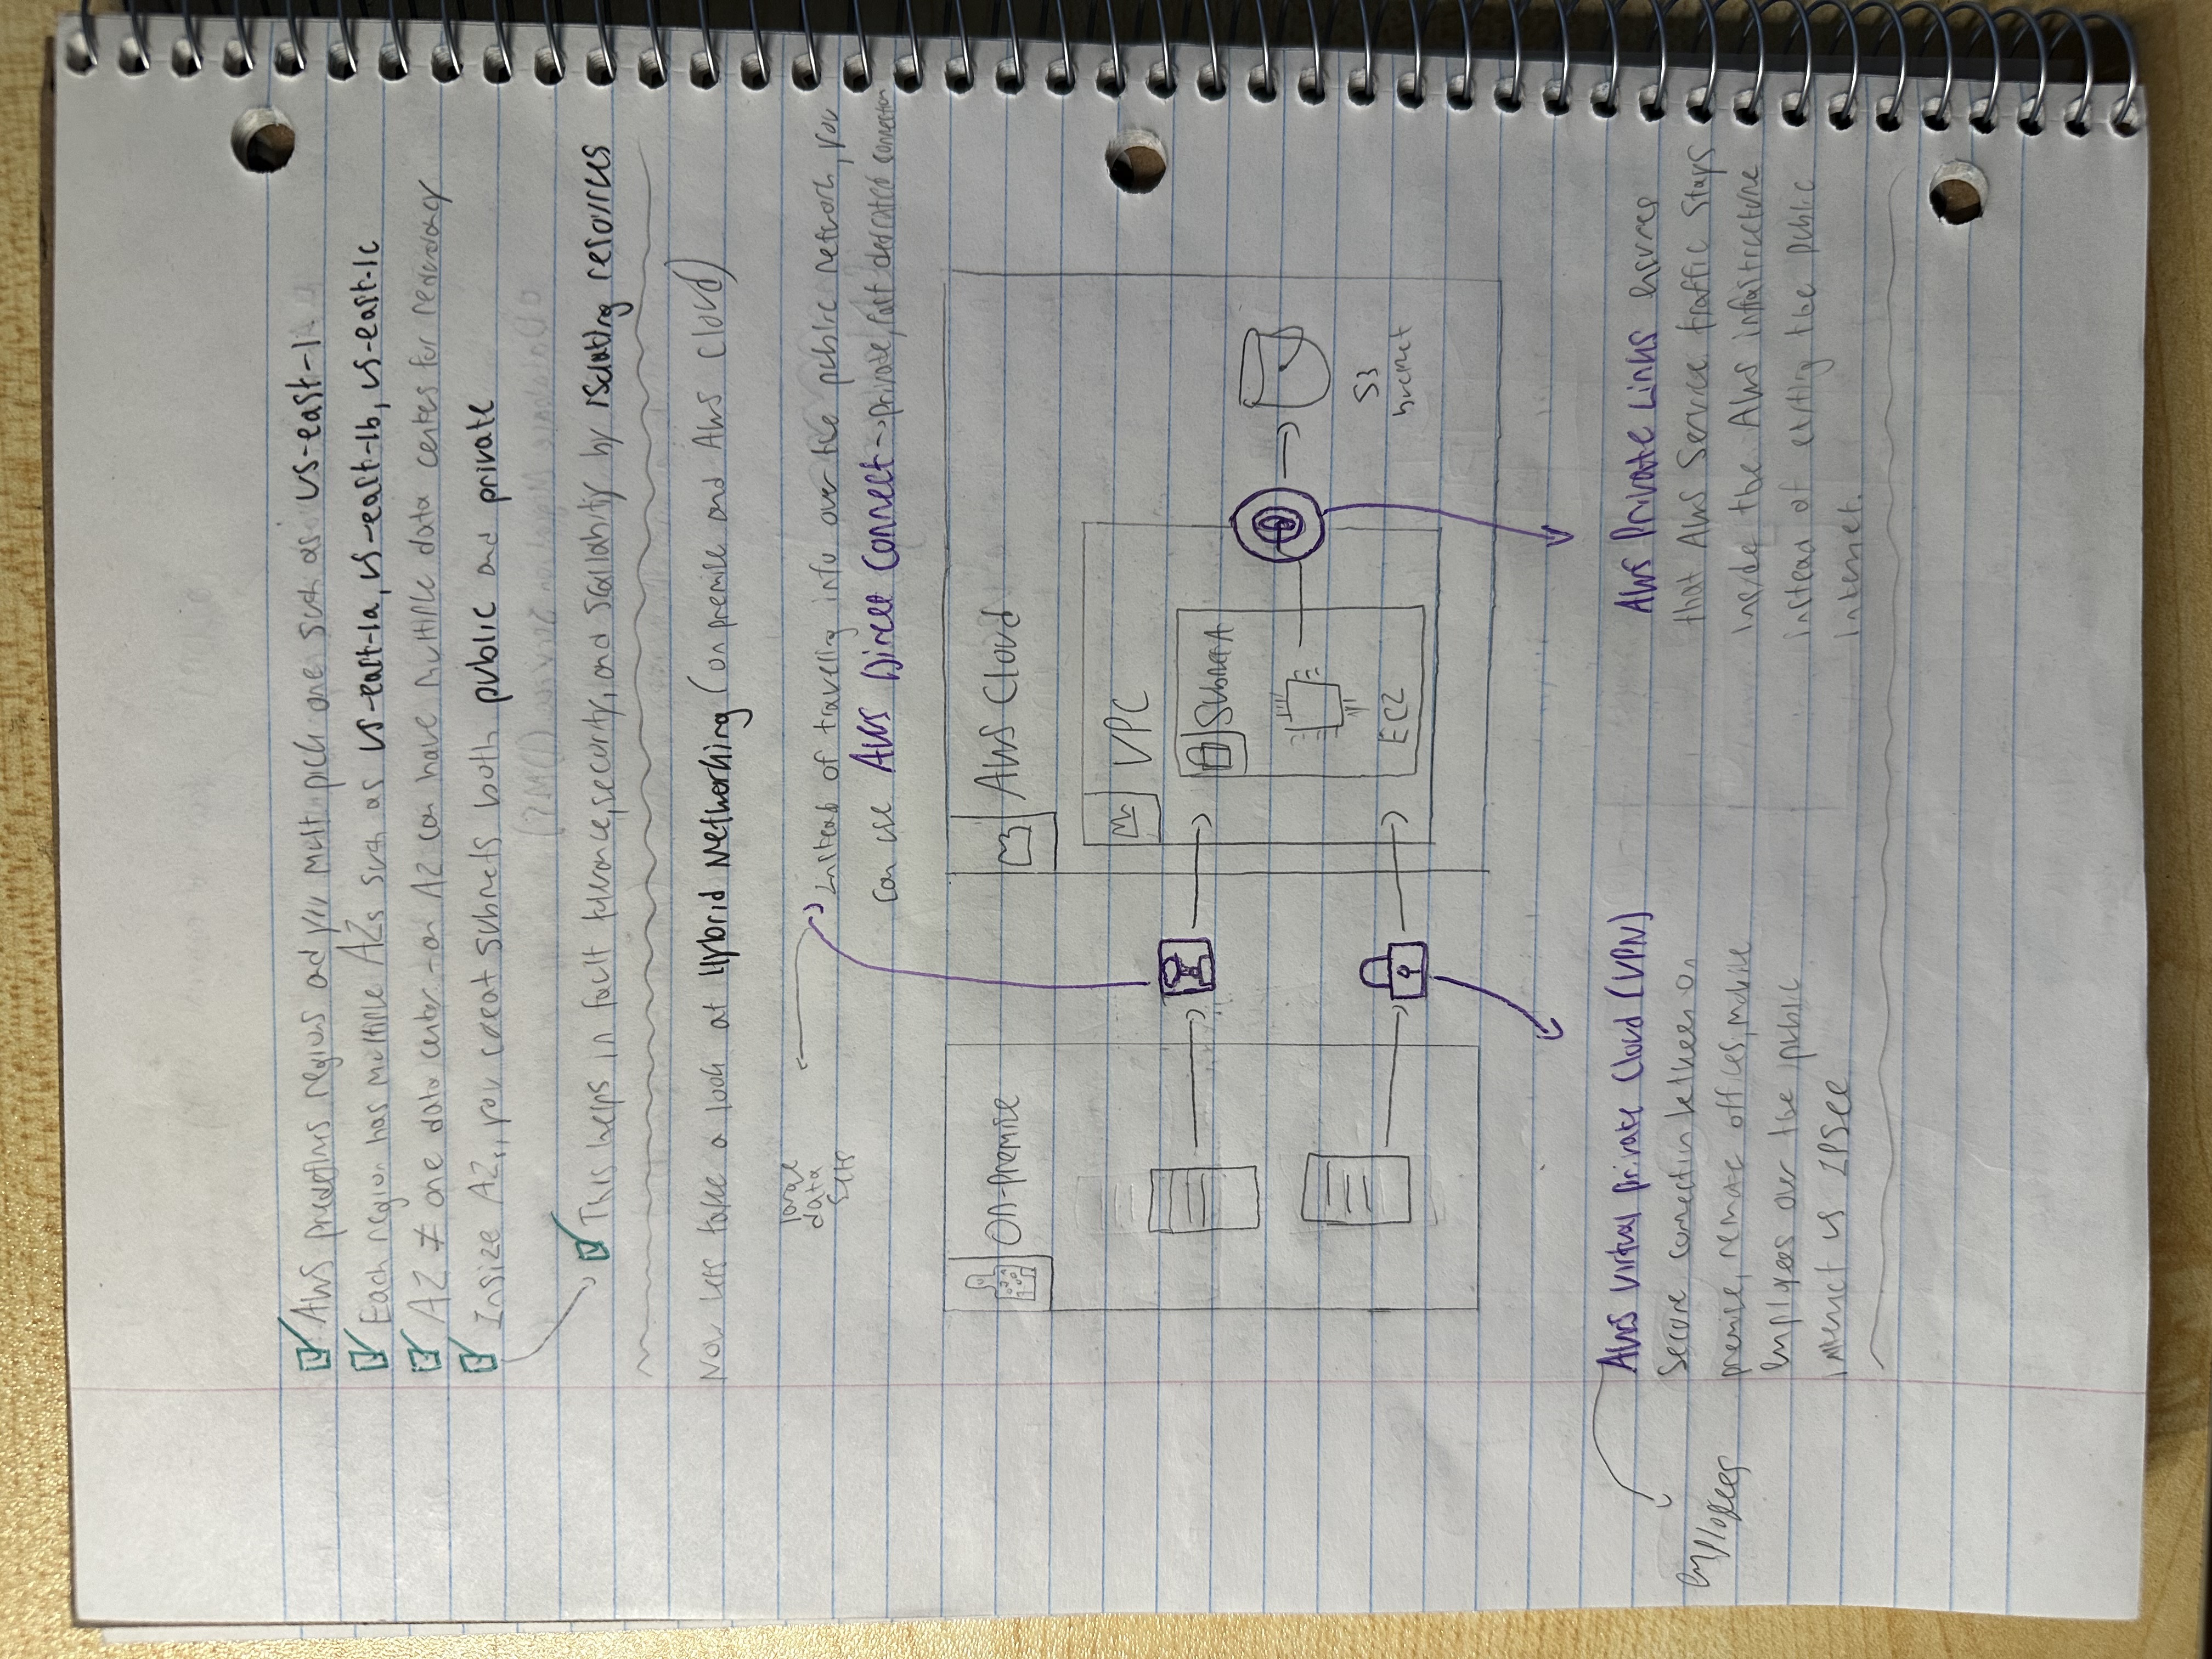 AWS predefines regions and you must pick one such as us-east-1.
Each region has multiple AZs such as us-east-1a, us-east-1b, us-east-1c
AZ ≠ one data center - an AZ can have multiple data centes for redundancy
Insize AZs, you creat subnets both public and private
This helps in fault tolerance, security, and scallability by isolating resources
Now lets take a look at Hybrid Networking (on premise and AWS Cloud)
large
data
sets
Instead of traveling info over the public network, you
can use AWS Direct Connect → private, fast dedicated connection
On-Premise
AWS Cloud
VPC
Subnet A
EC2
S3
bucket
AWS Virtual Private Cloud (VPN)
Secure connection between on
premise, remote offices, mobile
employees over the public
internet us IPSec
employees
AWS Private Links ensures
that AWS Service traffic stays
inside the AWS infrastructure
instead of exiting the public
internet.